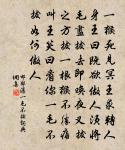 一猴死見冥王求轉人
身王曰既欲做人須將
毛盡拔去即喚夜叉拔
之方拔一根猴不勝痛
叫王笑曰看你一毛不
拔如何做人
邯鄲淳一毛不拔詞典
網書